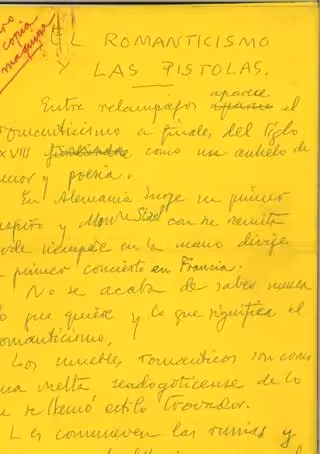 copia
maquina
EL ROMANTICISMO
LAS PISTOLAS.
aparece
Entre relampagos aparece el
romanticismo a finales del siglo
XVIII como un anhelo de
amor y poesia.
En Alemania surge su primer
suspiro y Mme Stael con su
verde siempre en la mano dirige
el primer concierto en Francia.
No se acaba de saber nunca
lo que quiere y lo que significa el
romanticismo.
Los muebles romanticos son como
una vuelta seudogoticense de lo
que se llamó estilo trovador.
Les conmueven las ruinas y